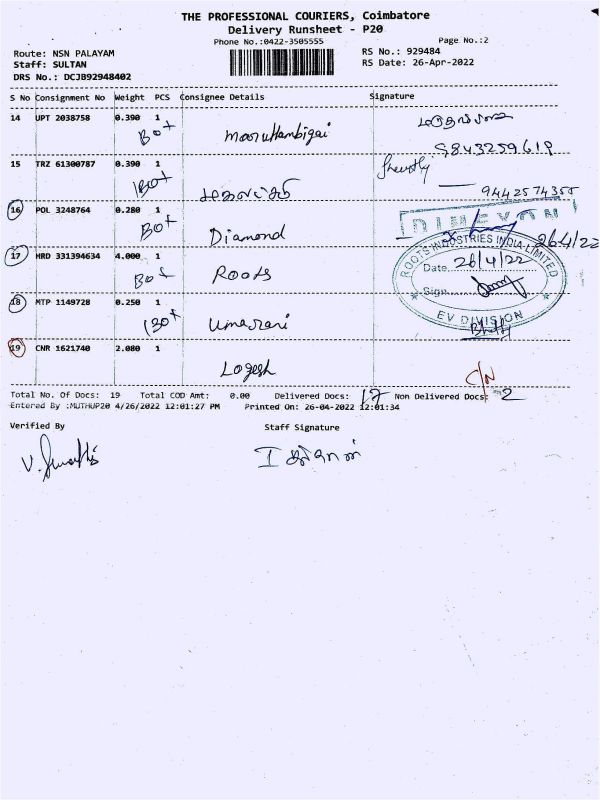 THE PROFESSIONAL COURIERS, Coimbatore
Delivery Runsheet - P20
Phone No.:0422-3505555
Page No.:2
Route: NSN PALAYAM
RS No.: 929484
Staff: SULTAN
RS Date: 26-Apr-2022
DRS No.: DCJB92948402
S No Consignment No Weight PCS Consignee Details Signature
14 UPT 2038758 0.390 1
9843259619
15 TRZ 61300787 0.390 1
9442574355
16 POL 3248764 0.280 1
Diamond
26/4/22
17 HRD 331394634 4.000 1
Roots
ROOTS INDUSTRIES INDIA LIMITED
Date 26/4/22
Sign
EV DIVISION
18 MTP 1149728 0.250 1
Umarani
19 CNR 1621740 2.080 1
Logesh
C/N
Total No. Of Docs: 19 Total COD Amt: 0.00 Delivered Docs: 17 Non Delivered Docs: 2
Entered By :MUTHUP20 4/26/2022 12:01:27 PM Printed On: 26-04-2022 12:01:34
Verified By Staff Signature